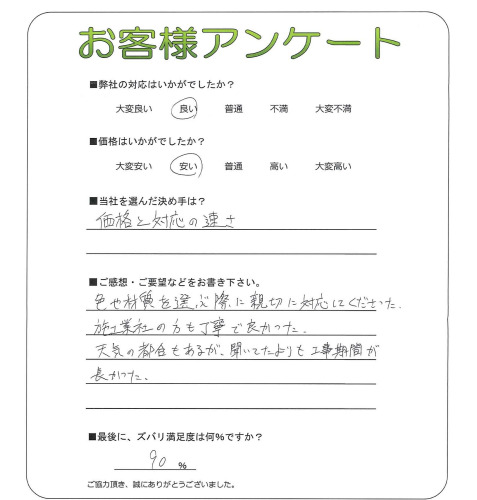 お客様アンケート
■弊社の対応はいかがでしたか？
大変良い 良い 普通 不満 大変不満
■価格はいかがでしたか？
大変安い 安い 普通 高い 大変高い
■当社を選んだ決め手は？
価格と対応の速さ
■ご感想・ご要望などをお書き下さい。
色や材質を選ぶ際に親切に対応してくださった.
施工業社の方も丁寧で良かった.
天気の都合もあるが、聞いてたよりも工事期間が
長かった。
■最後に、ズバリ満足度は何%ですか？
90 %
ご協力頂き、誠にありがとうございました。